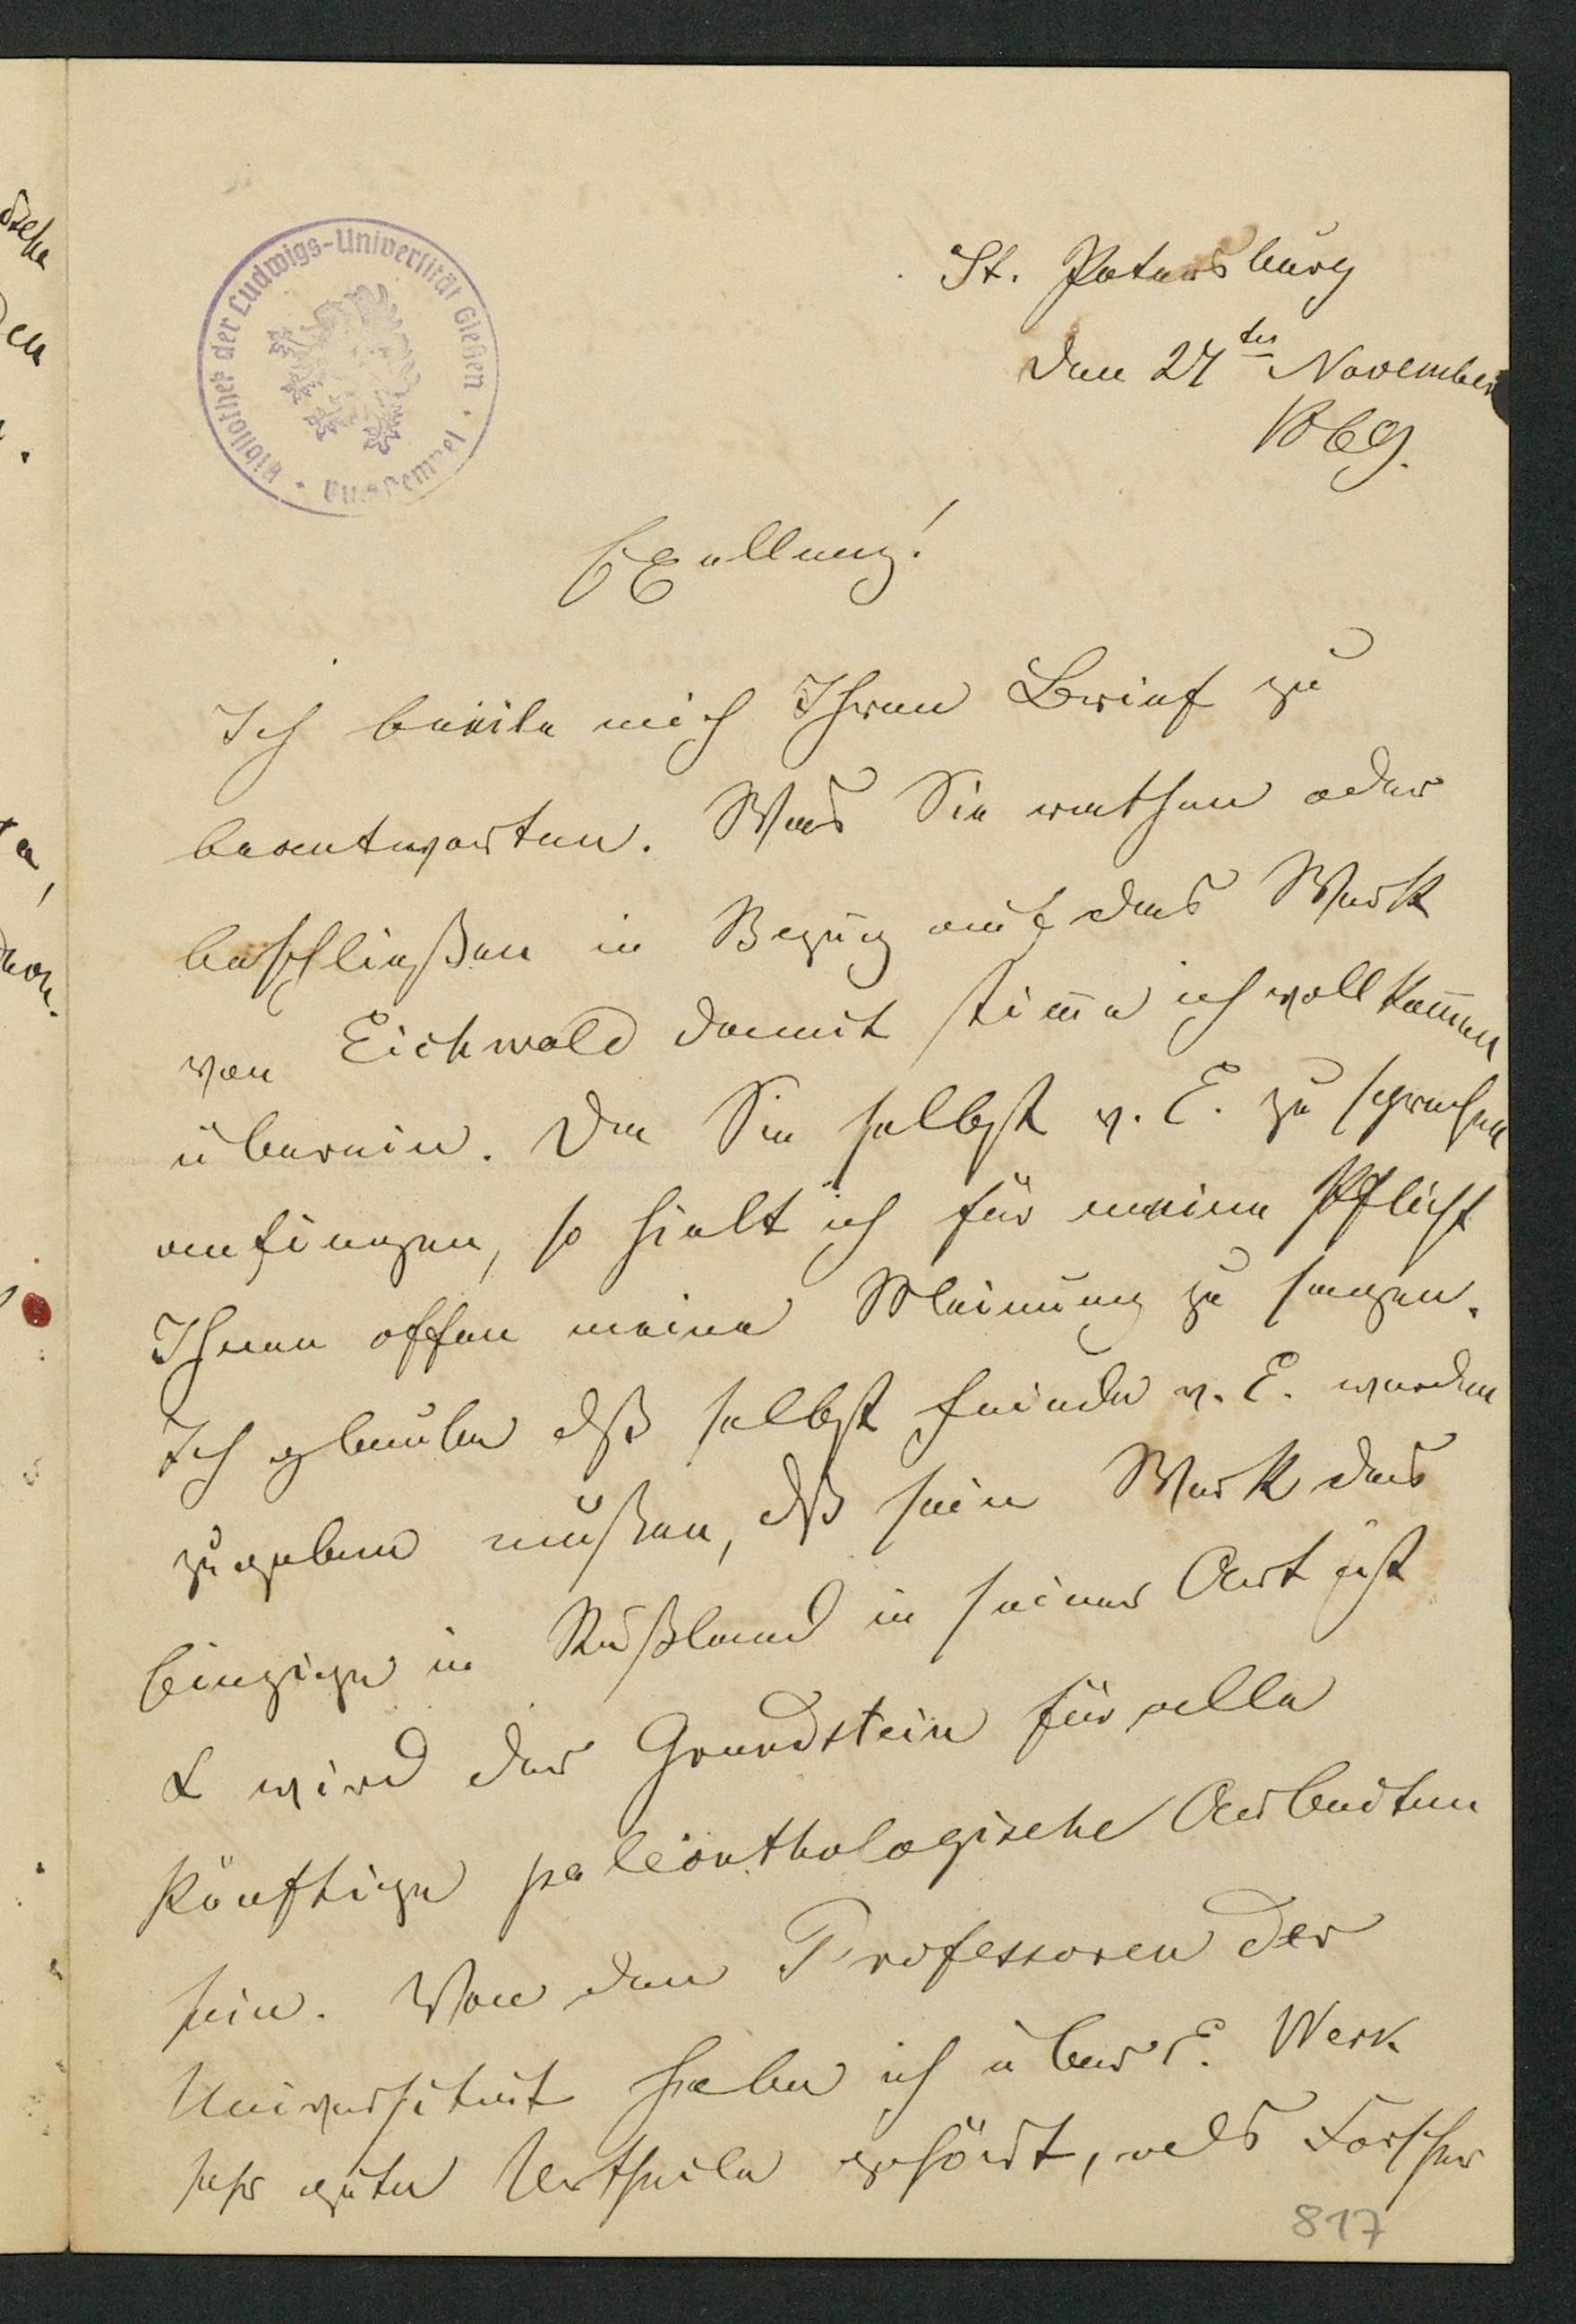 Bibliothek der Ludwigs-Universität Gießen
St. Petersburg
den 27ten November
1869.
Excellenz!
Ich beeile mich Ihren Brief zu
beantworten. Was Sie rathen oder
beschließen in Bezug auf das Werk
von Eichwald damit stimme ich vollkommen
überein. Da Sie selbst v. E. zu sprechen
anfingen, so hielt ich für meine Pflicht
Ihnen offen meine Meinung zu sagen.
Ich glaube dß selbst Feinde v. E. werden
zugeben müßen, dß sein Werk das
Einzige in Rußland in seiner Art ist
& wird der Grundstein für alle
künftige paleonthologische Arbeiten
sein. Von den Professoren der
Universitaet habe ich über E. Werk
sehr gute Urtheile gehört, als Forscher
817